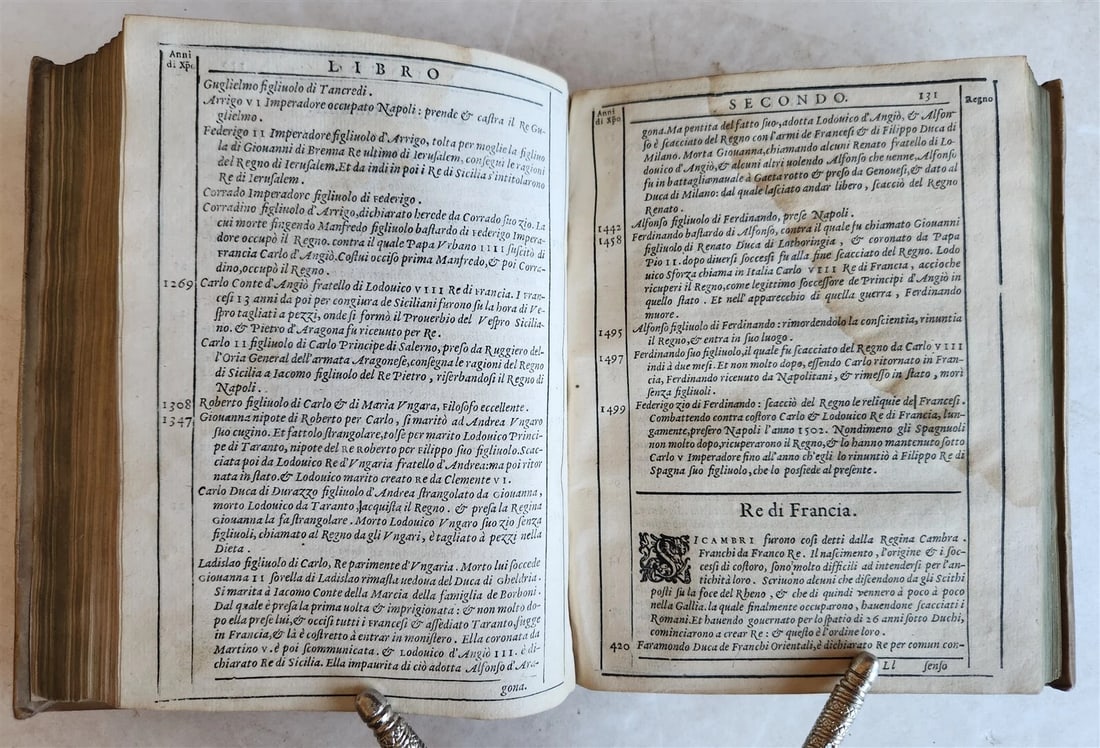 Anni
di Xpo
LIBRO
Guglielmo figliuolo di Tancredi.
Arrigo VI Imperadore occupato Napoli: prende & castra il Re Gu-
glielmo.
Federigo II Imperadore figliuolo d'Arrigo, tolta per moglie la figliuo
la di Giouanni di Brenna Re ultimo di Ierusalem, conseguì le ragioni
del Regno di Ierusalem. Et da indi in poi i Re di Sicilia s'intitolarono
Re di Ierusalem.
Corrado Imperadore figliuolo di Federigo.
Corradino figliuolo d'Arrigo, dichiarato herede da Corrado suo zio. La
cui morte fingendo Manfredo figliuolo bastardo di Federigo Impera-
dore occupò il Regno. contra il quale Papa Vrbano IIII suscitò di
Francia Carlo d'Angiò. Costui occiso prima Manfredo, & poi Corra-
dino, occupò il Regno.
1269 Carlo Conte d'Angiò fratello di Lodouico VIII Re di Francia. I Fran-
cesi 13 anni da poi per congiura de Siciliani furono su la hora di Ve-
spro tagliati a pezzi, onde si formò il Prouerbio del Vespro Sicilia-
no. & Pietro d'Aragona fu riceuuto per Re.
Carlo II figliuolo di Carlo Principe di Salerno, preso da Ruggiero del-
l'Oria General dell'armata Aragonese, consegna le ragioni del Regno
di Sicilia a Iacomo figliuolo del Re Pietro, riserbandosi il Regno di
Napoli.
1308 Roberto figliuolo di Carlo & di Maria Vngara, Filosofo eccellente.
1347 Giouanna nipote di Roberto per Carlo, si maritò ad Andrea Vngaro
suo cugino. Et fattolo strangolare, tolse per marito Lodouico Princi-
pe di Taranto, nipote del Re Roberto per Filippo suo figliuolo. Scac-
ciata poi da Lodouico Re d'Vngaria fratello d'Andrea: ma poi ritor
nata in stato. & Lodouico marito creato Re da Clemente VI.
Carlo Duca di Durazzo figliuolo d'Andrea strangolato da Giouanna,
morto Lodouico da Taranto, s'acquista il Regno. & presa la Regina
Giouanna la fa strangolare. Morto Lodouico Vngaro suo zio senza
figliuoli, chiamato al Regno da gli Vngari, è tagliato à pezzi nella
Dieta.
Ladislao figliuolo di Carlo, Re parimente d'Vngaria. Morto lui succede
Giouanna II sorella di Ladislao rimasta uedoua del Duca di Gheldria.
Si marita à Iacomo Conte della Marcia della famiglia de Borboni.
Dal quale è presa la prima uolta & imprigionata: & non molto do-
po ella prese lui, & occisi tutti i Francesi & assediato Taranto, fugge
in Francia, & là è costretto à entrar in monistero. Ella coronata da
Martino V. è poi scommunicata. & Lodouico d'Angiò III. è di-
chiarato Re di Sicilia. Ella impaurita di ciò adotta Alfonso d'Ara-
gona.
Anni
di Xpo
SECONDO. 131
Regno
gona. Ma pentita del fatto suo, adotta Lodouico d'Angiò, & Alfon-
so è scacciato del Regno con l'armi de Francesi & di Filippo Duca di
Milano. Morta Giouanna, chiamando alcuni Renato fratello di Lo-
douico d'Angiò, & alcuni altri uolendo Alfonso che uenne. Alfonso
fu in battaglia nauale à Gaeta rotto & preso da Genouesi, & dato al
Duca di Milano: dal quale lasciato andar libero, scacciò del Regno
Renato.
1442 Alfonso figliuolo di Ferdinando, prese Napoli.
1458 Ferdinando bastardo di Alfonso, contra il quale fu chiamato Giouanni
figliuolo di Renato Duca di Lothoringia, & coronato da Papa
Pio II. dopo diuersi soccessi fu alla fine scacciato del Regno. Lodo
uico Sforza chiama in Italia Carlo VIII Re di Francia, accioche
ricuperi il Regno, come legittimo soccessore de Principi d'Angiò in
quello stato. Et nell'apparecchio di quella guerra, Ferdinando
muore.
1495 Alfonso figliuolo di Ferdinando: rimordendolo la conscientia, rinuntia
il Regno, & entra in suo luogo.
1497 Ferdinando suo figliuolo, il quale fu scacciato del Regno da Carlo VIII
indi à due mesi. Et non molto dopo, essendo Carlo ritornato in Fran-
cia, Ferdinando riceuuto da Napolitani, & rimesso in stato, morì
senza figliuoli.
1499 Federigo zio di Ferdinando: scacciò del Regno le reliquie de Francesi.
Combattendo contra costoro Carlo & Lodouico Re di Francia, lun-
gamente, presero Napoli l'anno 1502. Nondimeno gli Spagnuoli
non molto dopo, ricuperarono il Regno, & lo hanno mantenuto sotto
Carlo V Imperadore fino all'anno ch'egli lo rinuntiò à Filippo Re di
Spagna suo figliuolo, che lo possiede al presente.
Re di Francia.
SICAMBRI furono cosi detti dalla Regina Cambra.
Franchi da Franco Re. Il nascimento, l'origine & i soc-
cessi di costoro, sono molto difficili ad intendersi per l'an-
tichità loro. Scriuono alcuni che discendono da gli Scithi
posti su la foce del Rheno, & che di quindi vennero à poco à poco
nella Gallia. la quale finalmente occuparono, hauendone scacciati i
Romani. Et hauendo gouernato per lo spatio di 26 anni sotto Duchi,
cominciarono a crear Re: & questo è l'ordine loro.
420 Faramondo Duca de Franchi Orientali, è dichiarato Re per comun con-
Ll senso